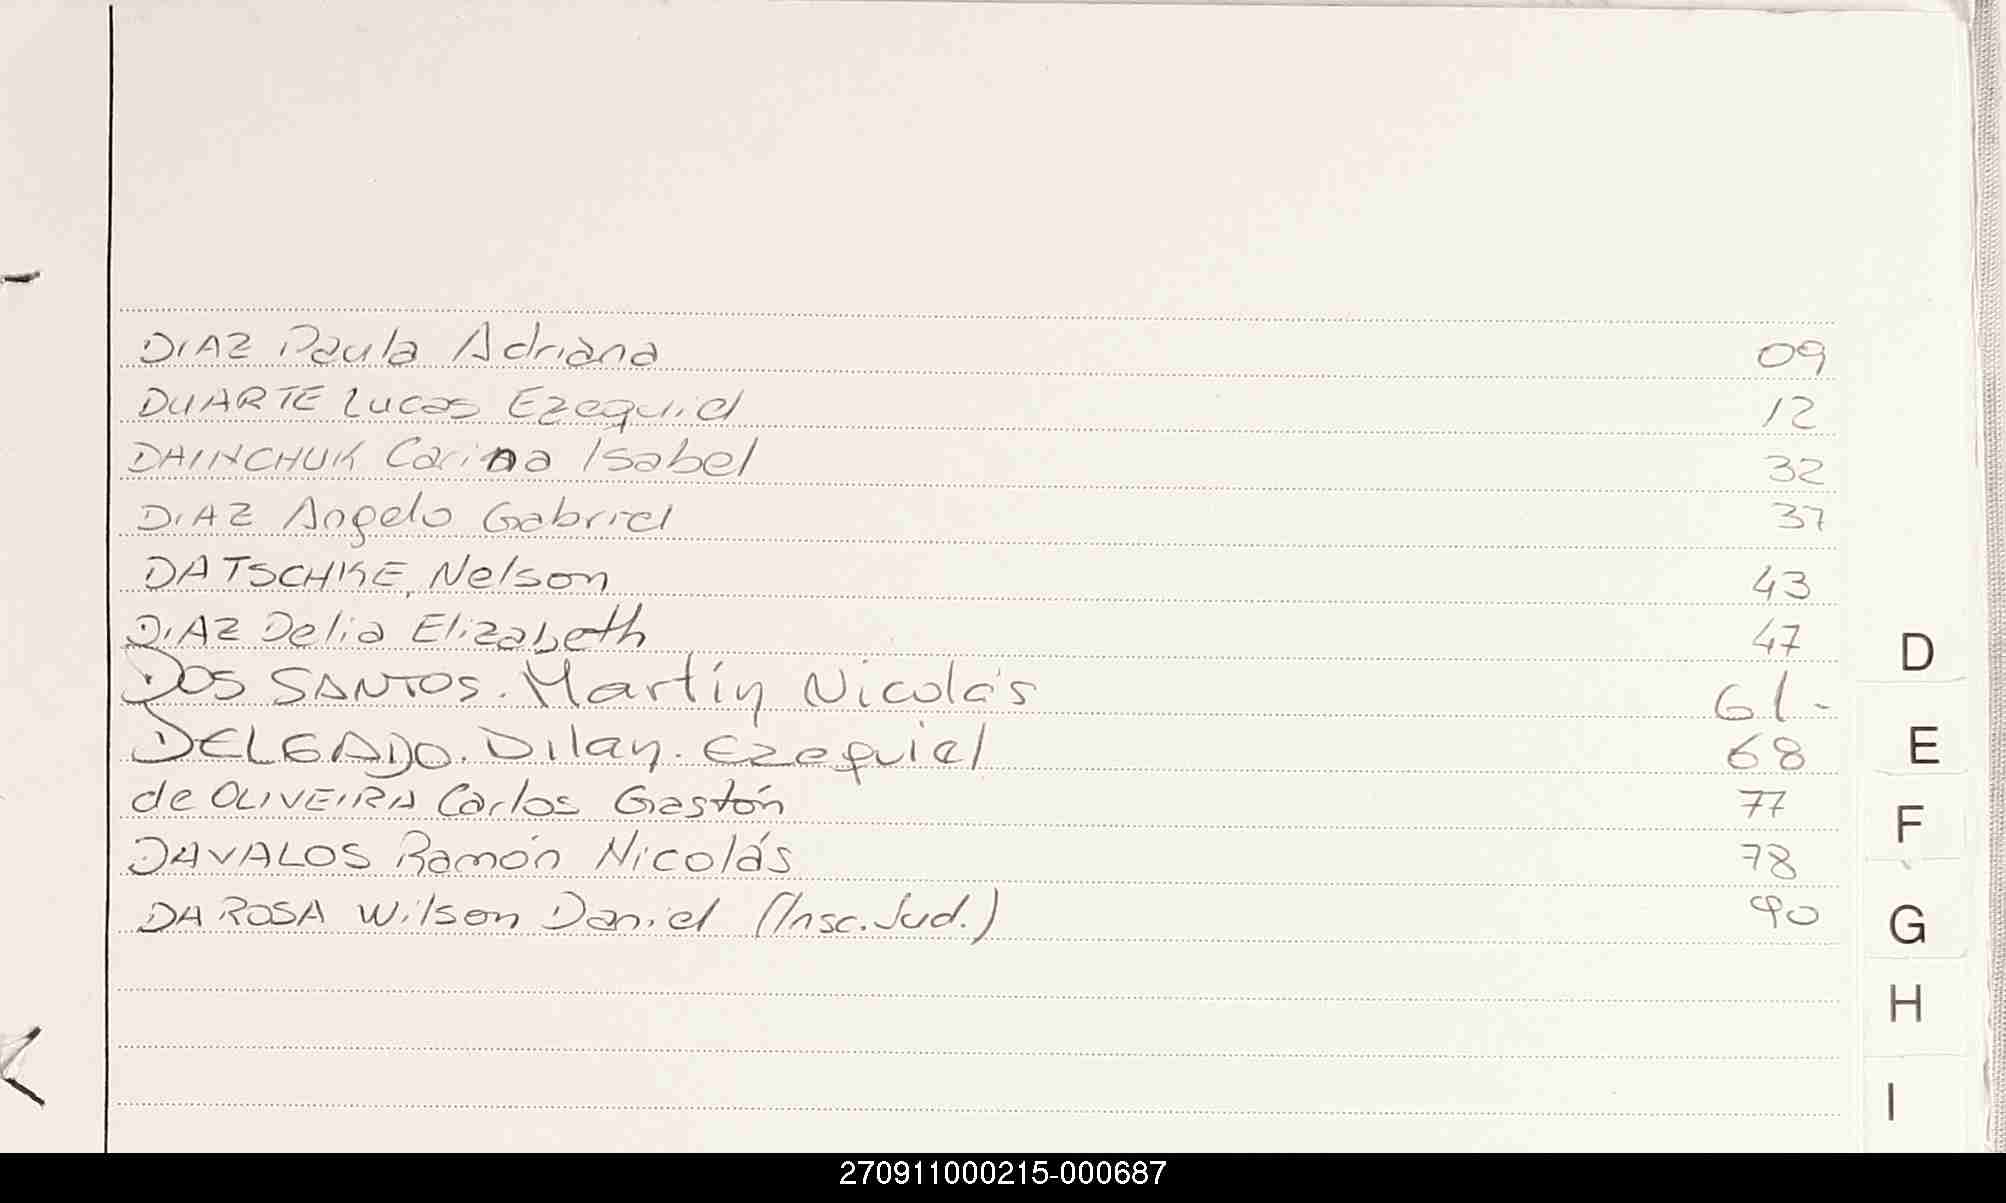 DIAZ Paula Adriana 09
DUARTE Lucas Ezequiel 12
DAINCHUK Carina Isabel 32
DIAZ Angelo Gabriel 37
DATSCHKE, Nelson 43
DIAZ Delia Elizabeth 47
DOS SANTOS. Martín Nicolás 61-
DELGADO. Dilan. Ezequiel 68
de OLIVEIRA Carlos Gastón 77
DAVALOS Ramón Nicolás 78
DA ROSA Wilson Daniel (Insc. Jud.) 90
D
E
F
G
H
I
270911000215-000687